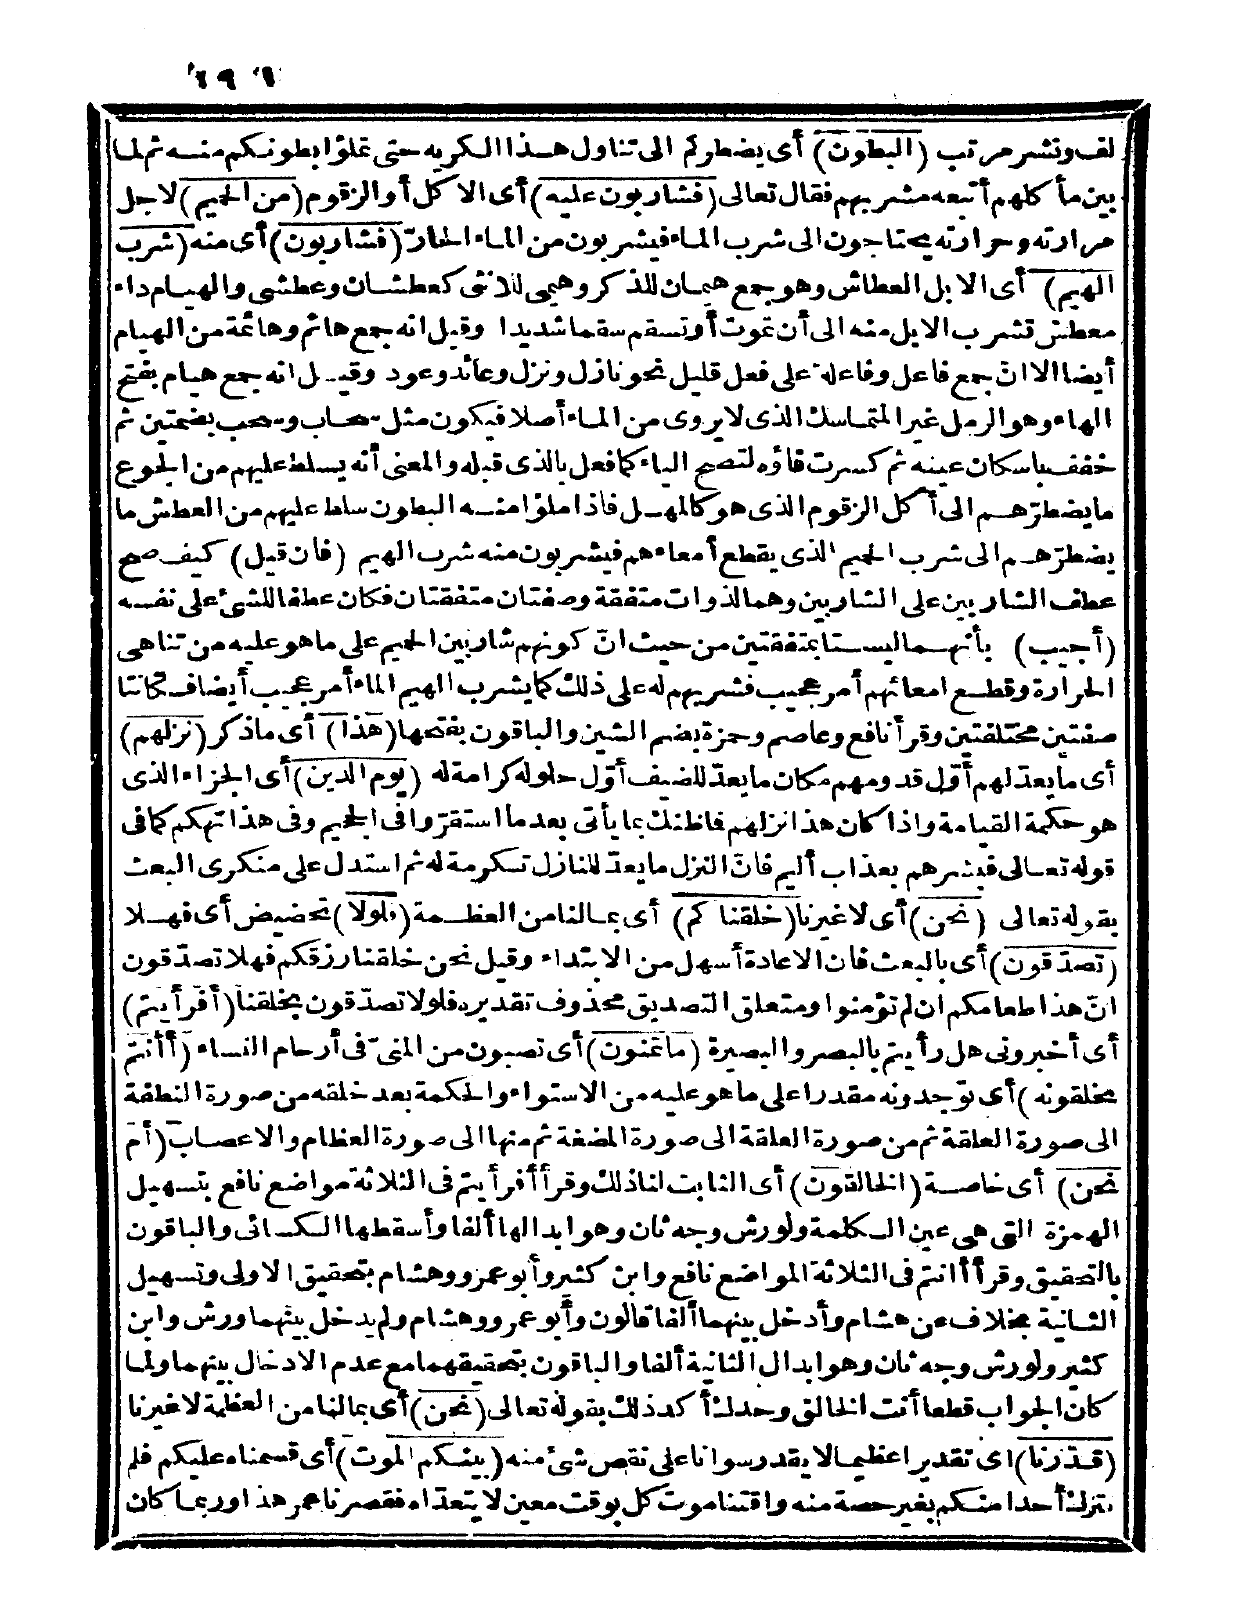 ١٩١
لف ونشر مرتب (البطون) أى يضطركم الى تناول هذا الكريه حتى تملؤا بطونكم منه ثم لما
بين مأكلهم أتبعه مشربهم فقال تعالى (فشاربون عليه) أى الاكل أو الزقوم (من الحميم) لاجل
مرارته وحرارته يحتاجون الى شرب الماء فيشربون من الماء الحارّ (فشاربون) أى منه (شرب
الهيم) أى الابل العطاش وهو جمع هيمان للذكر وهيمى للانثى كعطشان وعطشى والهيام داء
معطش تشرب الابل منه الى أن تموت أو تسقم سقما شديدا وقيل انه جمع هائم وهائمة من الهيام
أيضا الا انّ جمع فاعل وفاعلة على فعل قليل نحو نازل ونزل وعائد وعود وقيل انه جمع هيام بفتح
الهاء وهو الرمل غير المتماسك الذى لا يروى من الماء أصلا فيكون مثل سحاب وسحب بضمتين ثم
خفف باسكان عينه ثم كسرت فاؤه لتصح الياء كما فعل بالذى قبله والمعنى أنه يسلط عليهم من الجوع
ما يضطرّهم الى أكل الزقوم الذى هو كالمهل فاذا ملؤا منه البطون سلط عليهم من العطش ما
يضطرّهم الى شرب الحميم الذى يقطع أمعاءهم فيشربون منه شرب الهيم (فان قيل) كيف صح
عطف الشاربين على الشاربين وهما لذوات متفقة وصفتان متفقتان فكان عطفا للشئ على نفسه
(أجيب) بأنهما ليستا بمتفقتين من حيث انّ كونهم شاربين الحميم على ما هو عليه من تناهى
الحرارة وقطع امعائهم أمر عجيب فشربهم له على ذلك كما يشرب الهيم الماء أمر عجيب أيضا فكانتا
صفتين مختلفتين وقرأ نافع وعاصم وحمزة بضم الشين والباقون بفتحها (هذا) أى ما ذكر (نزلهم)
أى ما يعدّ لهم أوّل قدومهم مكان ما يعدّ للضيف أوّل حلوله كرامة له (يوم الدين) أى الجزاء الذى
هو حكمة القيامة واذا كان هذا نزلهم فما ظنك بما يأتى بعد ما استقرّوا فى الجحيم وفى هذا تهكم كما فى
قوله تعالى فبشرهم بعذاب أليم فانّ النزل ما يعدّ للنازل تكرمة له ثم استدل على منكرى البعث
بقوله تعالى (نحن) أى لا غيرنا (خلقناكم) أى بما لنا من العظمة (فلولا) تحضيض أى فهلا
(تصدّقون) أى بالبعث فان الاعادة أسهل من الابتداء وقيل نحن خلقنا رزقكم فهلا تصدّقون
انّ هذا طعامكم ان لم تؤمنوا ومتعلق التصديق محذوف تقديره فلولا تصدّقون بخلقنا (أفرأيتم)
أى أخبرونى هل رأيتم بالبصر والبصيرة (ما تمنون) أى تصبون من المنىّ فى أرحام النساء (أأنتم
تخلقونه) أى توجدونه مقدرا على ما هو عليه من الاستواء والحكمة بعد خلقه من صورة النطفة
الى صورة العلقة ثم من صورة العلقة الى صورة المضغة ثم منها الى صورة العظام والاعصاب (أم
نحن) أى خاصة (الخالقون) أى الثابت لنا ذلك وقرأ أفرأيتم فى الثلاثة مواضع نافع بتسهيل
الهمزة التى هى عين الكلمة ولورش وجه ثان وهو ابدالها ألفا وأسقطها الكسائى والباقون
بالتحقيق وقرأ أانتم فى الثلاثة المواضع نافع وابن كثير وأبو عمرو وهشام بتحقيق الاولى وتسهيل
الثانية بخلاف عن هشام وأدخل بينهما ألفا قالون وأبو عمرو وهشام ولم يدخل بينهما ورش وابن
كثير ولورش وجه ثان وهو ابدال الثانية ألفا والباقون بتحقيقهما مع عدم الادخال بينهما ولما
كان الجواب قطعا أنت الخالق وحدك أكد ذلك بقوله تعالى (نحن) أى بما لنا من العظمة لا غيرنا
(قدّرنا) اى تقديرا عظيما لا يقدر سوانا على نقص شئ منه (بينكم الموت) أى قسمناه عليكم فلم
نترك أحدا منكم بغير حصة منه واقتنا موت كل بوقت معين لا يتعدّاه فقصرنا عمر هذا وربما كان